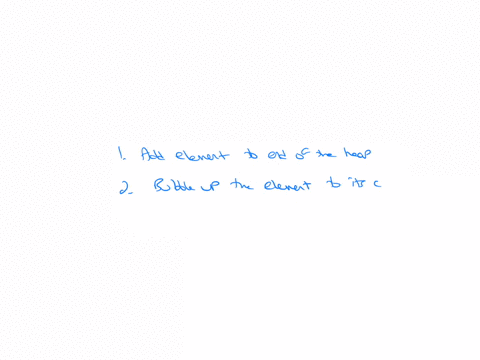 1. Add element to end of the heap
2. Bubble up the element to its c